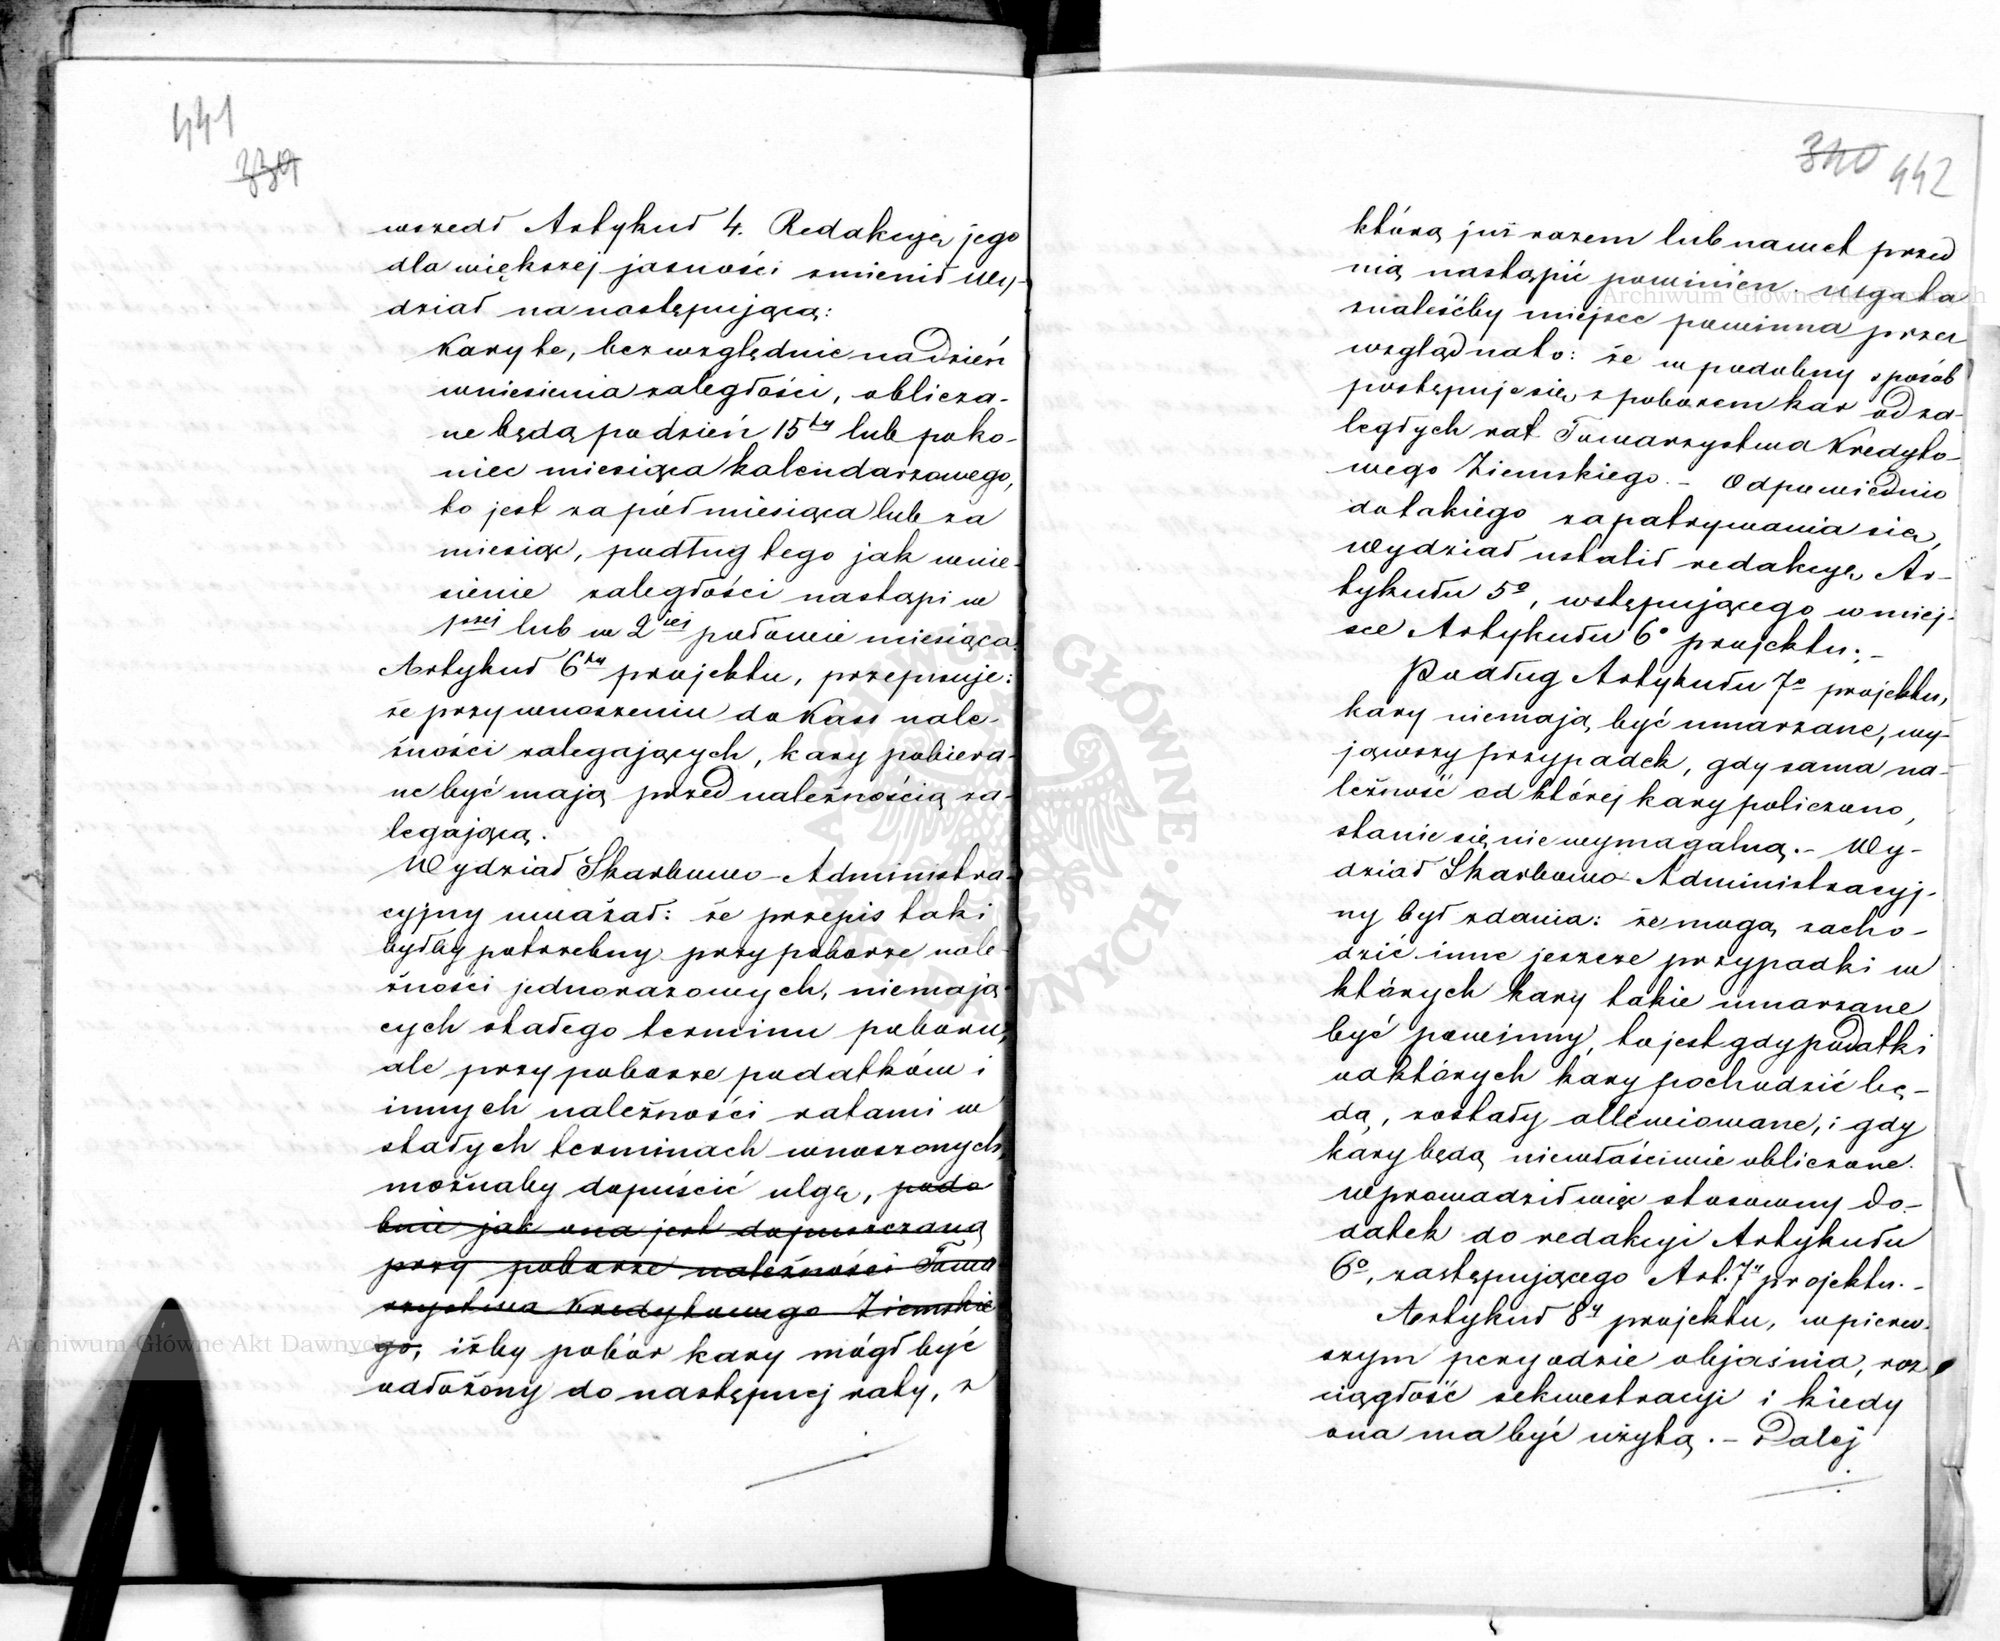 441
339
wszedł Artykuł 4. Redakcyą jego
dla większej jasności zmienił Wy-
dział na następującą:
Kary te, bezwzględnie na dzień
wniesienia zaległości, oblicza-
ne będą po dzień 15ty lub po ko-
niec miesiąca kalendarzowego,
to jest za pół miesiąca lub za
miesiąc, podług tego jak wnie-
sienie zaległości nastąpi w
1szej lub w 2iej połowie miesiąca.
Artykuł 6ty projektu, przepisuje:
że przy wnoszeniu do Kass nale-
żności zalegających, kary pobiera-
ne być mają przed należnością za-
legającą.
Wydział Skarbowo-Administra-
cyjny uważał: że przepis taki
byłby potrzebny przy poborze nale-
żności jednorazowych, niemają-
cych stałego terminu poboru,
ale przy poborze podatków i
innych należności ratami w
stałych terminach wnoszonych,
możnaby dopuścić ulgę, podo
bnie jak ona jest dopuszczaną
przy poborze należności Towa
rzystwa Kredytowego Ziemskie
go, iżby pobór kary mógł być
odłożony do następnej raty, z
340 442
którą już razem lub nawet przed
nią nastąpić powinien. Ulga ta
znaleśćby miejsce powinna przez
wzgląd na to: że w podobny sposób
postępuje się z poborem kar od za-
ległych rat Towarzystwa Kredyto-
wego Ziemskiego. - Odpowiednio
do takiego zapatrywania się,
Wydział ustalił redakcyę Ar-
tykułu 5o, wstępującego w miej-
sce Artykułu 6o projektu. -
Podług Artykułu 7o projektu,
kary niemają być umarzane, wy-
jąwszy przypadek, gdy sama na-
leżność od której kary policzono,
stanie się nie wymagalną. - Wy-
dział Skarbowo-Administracyj-
ny był zdania: że mogą zacho-
dzić inne jeszcze przypadki w
których kary takie umarzane
być powinny, to jest gdy podatki
od których kary pochodzić bę-
dą, zostały allewiowane, i gdy
kary będą niewłaściwie obliczone.
Wprowadził więc stosowny do-
datek do redakcyi Artykułu
6o, zastępującego Art. 7y projektu. -
Artykuł 8y projektu, w pierw-
szym peryodzie objaśnia, roz
ciągłość sekwestracyi i kiedy
ona ma być użytą. - Dalej
Archiwum Główne Akt Dawnych
Archiwum Główne Akt Dawnych
ARCHIWUM GŁÓWNE AKT DAWNYCH